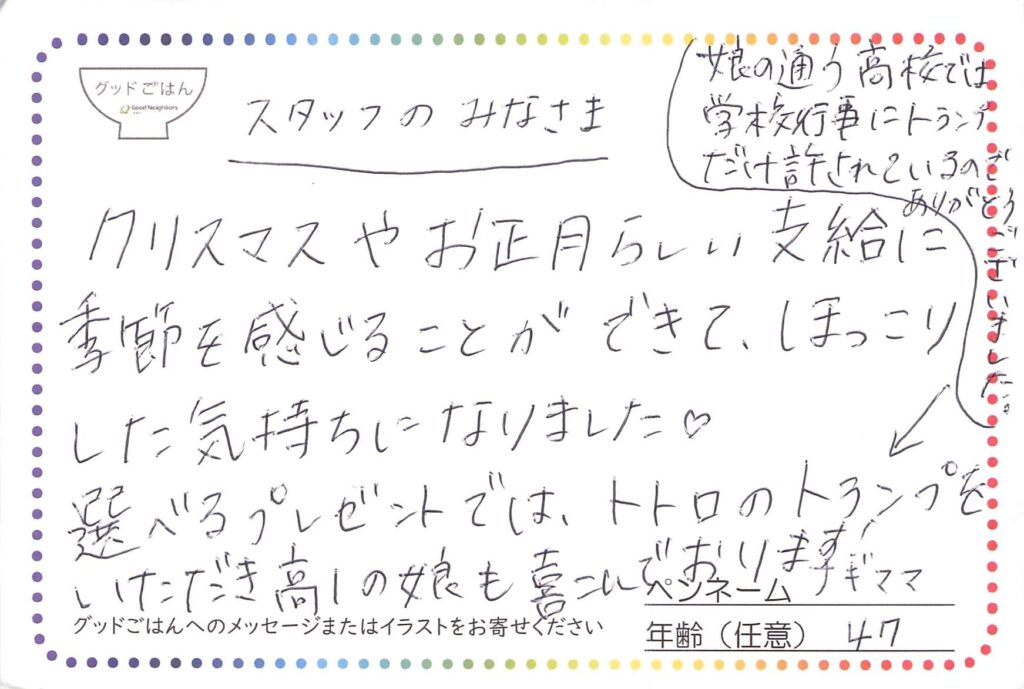 グッドごはん
Good Neighbors
スタッフの みなさま
娘の通う高校では
学校行事にトランプ
だけ許されているので
ありがとう
ございました。
クリスマスやお正月らしい支給に
季節を感じることができて、ほっこり
した気持ちになりました♡
選べるプレゼントでは、トトロのトランプを
いただき高1の娘も喜こんでおります!
グッドごはんへのメッセージまたはイラストをお寄せください
ペンネーム ギママ
年齢(任意) 47